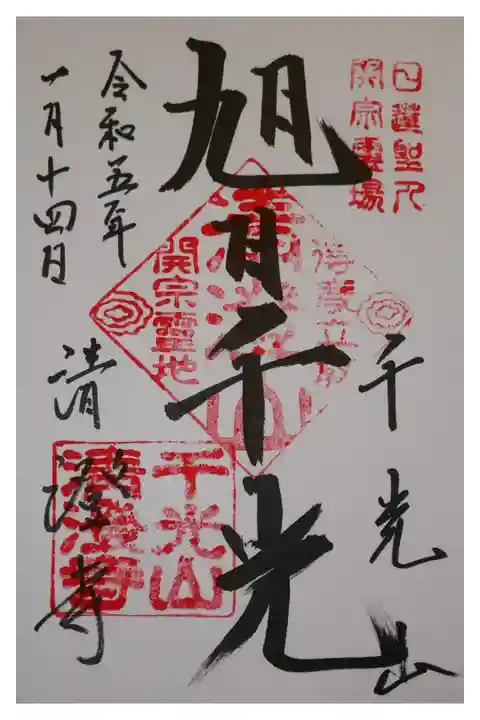 日蓮聖人
開宗霊場
千光山
得度立教
開宗霊地
旭千光
千光山
清澄寺
令和五年
一月十四日
清澄寺